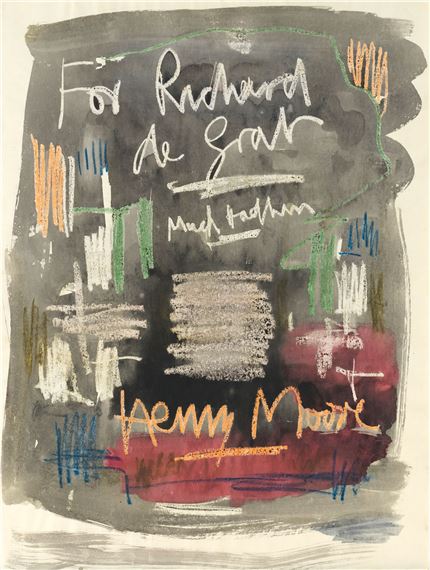 For Richard
de Grab
Much Hadham
Henry Moore